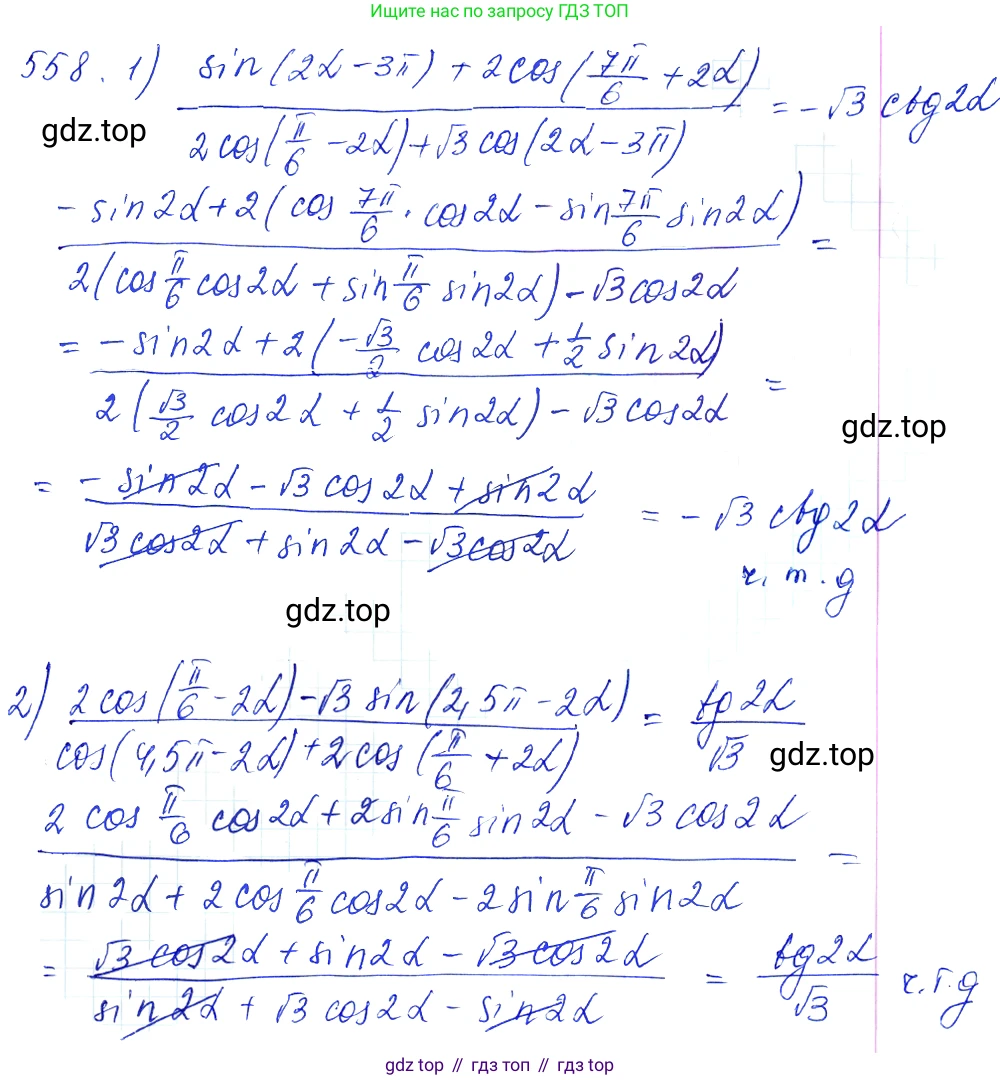 Ищите нас по запросу ГДЗ ТОП
558. 1) (sin(2α - 3π) + 2cos(7π/6 + 2α)) / (2cos(π/6 - 2α) + √3 cos(2α - 3π)) = -√3 ctg2α
gdz.top
(-sin2α + 2(cos 7π/6 · cos2α - sin 7π/6 sin2α)) / (2(cos π/6 cos2α + sin π/6 sin2α) - √3 cos2α) =
= (-sin2α + 2(-√3/2 cos2α + 1/2 sin2α)) / (2(√3/2 cos2α + 1/2 sin2α) - √3 cos2α) =
gdz.top
= (-sin2α - √3 cos2α + sin2α) / (√3 cos2α + sin2α - √3 cos2α) = -√3 ctg2α
ч. т. д
gdz.top
2) (2cos(π/6 - 2α) - √3 sin(2,5π - 2α)) / (cos(4,5π - 2α) + 2cos(π/6 + 2α)) = tg2α/√3
gdz.top
(2cos π/6 cos2α + 2sin π/6 sin2α - √3 cos2α) / (sin2α + 2cos π/6 cos2α - 2sin π/6 sin2α) =
= (√3 cos2α + sin2α - √3 cos2α) / (sin2α + √3 cos2α - sin2α) = tg2α/√3 ч.т.д
gdz top // гдз топ // gdz.top